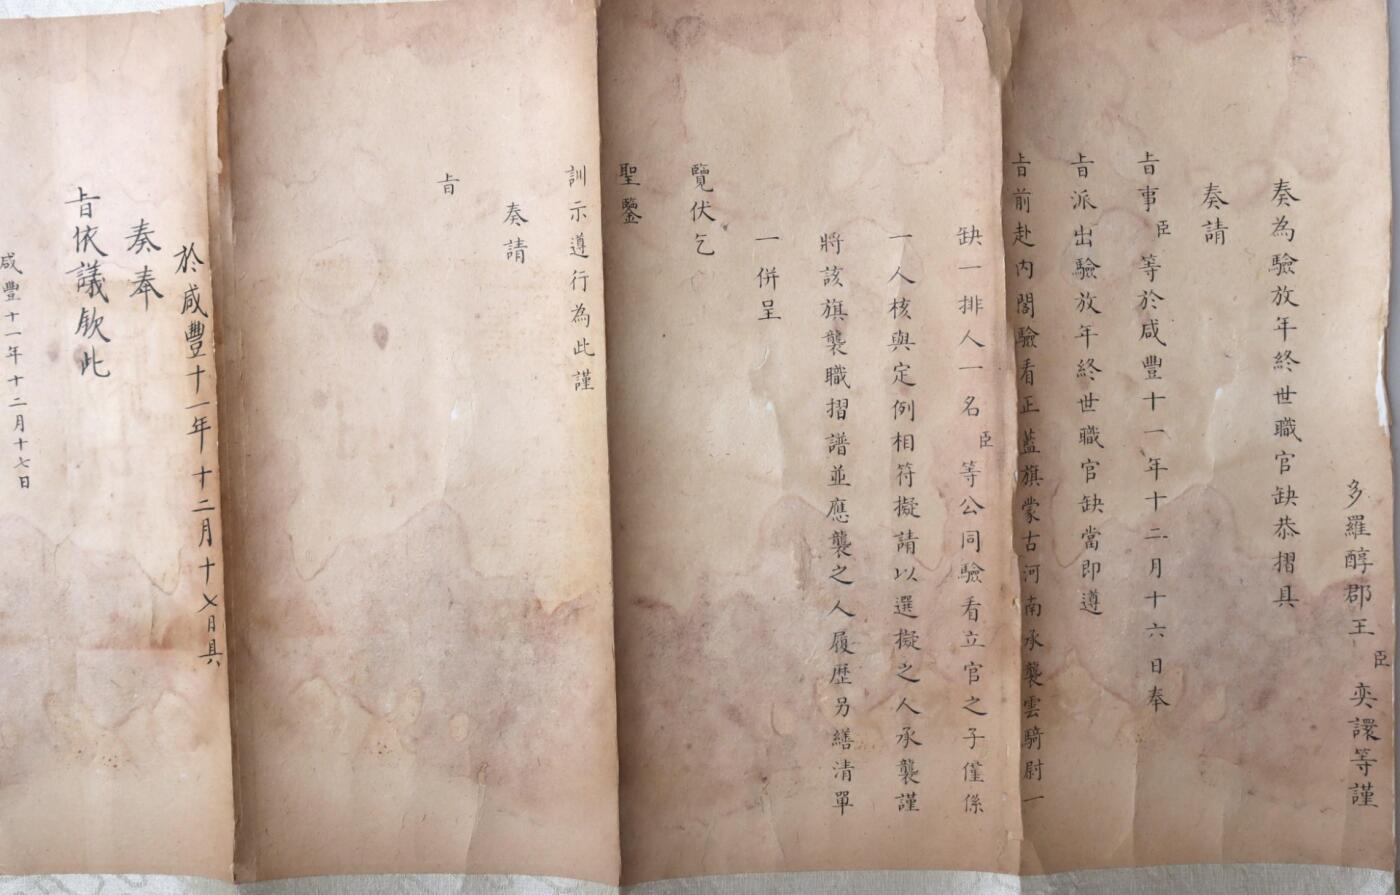 多羅醇郡王臣奕譞等謹
奏為驗放年終世職官缺恭摺具
奏請
旨事臣等於咸豐十一年十二月十六日奉
旨派出驗放年終世職官缺當即遵
旨前赴內閣驗看正藍旗蒙古河南承襲雲騎尉一
缺一排人一名臣等公同驗看立官之子僅係
一人核與定例相符擬請以選擬之人承襲謹
將該旗襲職摺譜並應襲之人履歷另繕清單
一併呈
覽伏乞
聖鑒
訓示遵行為此謹
奏請
旨
於咸豐十一年十二月十七日具
奏奉
旨依議欽此
咸豐十一年十二月十七日